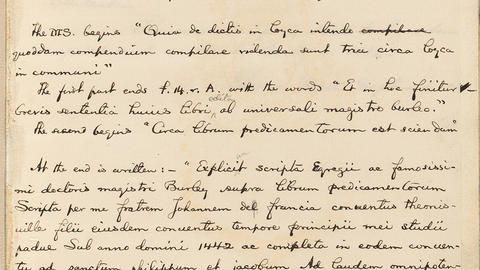 The MS. begins "Quia de dictis in loyca intende compilare
quoddam compendium compilare videnda sunt tria circa loyca
in communi"
The first part ends f. 14. r. A. with the words "Et in hoc finitur
edita
brevis sententia huius libri, ab universali magistro burleo."
The second begins "Circa librum predicamentorum est sciendum"
At the end is written: - "Explicit scripta Egregii ac famosissi-
mi doctoris magistri Burley supra librum predicamentorum
Scripta per me fratrem Johannem del francia conventus theonis-
ville filii eiusdem conventus tempore principii mei studii
padue Sub anno domini 1442 ac completa in eodem conven-
tu ad sanctum philippum et jacobum Ad laudem omnipoten-